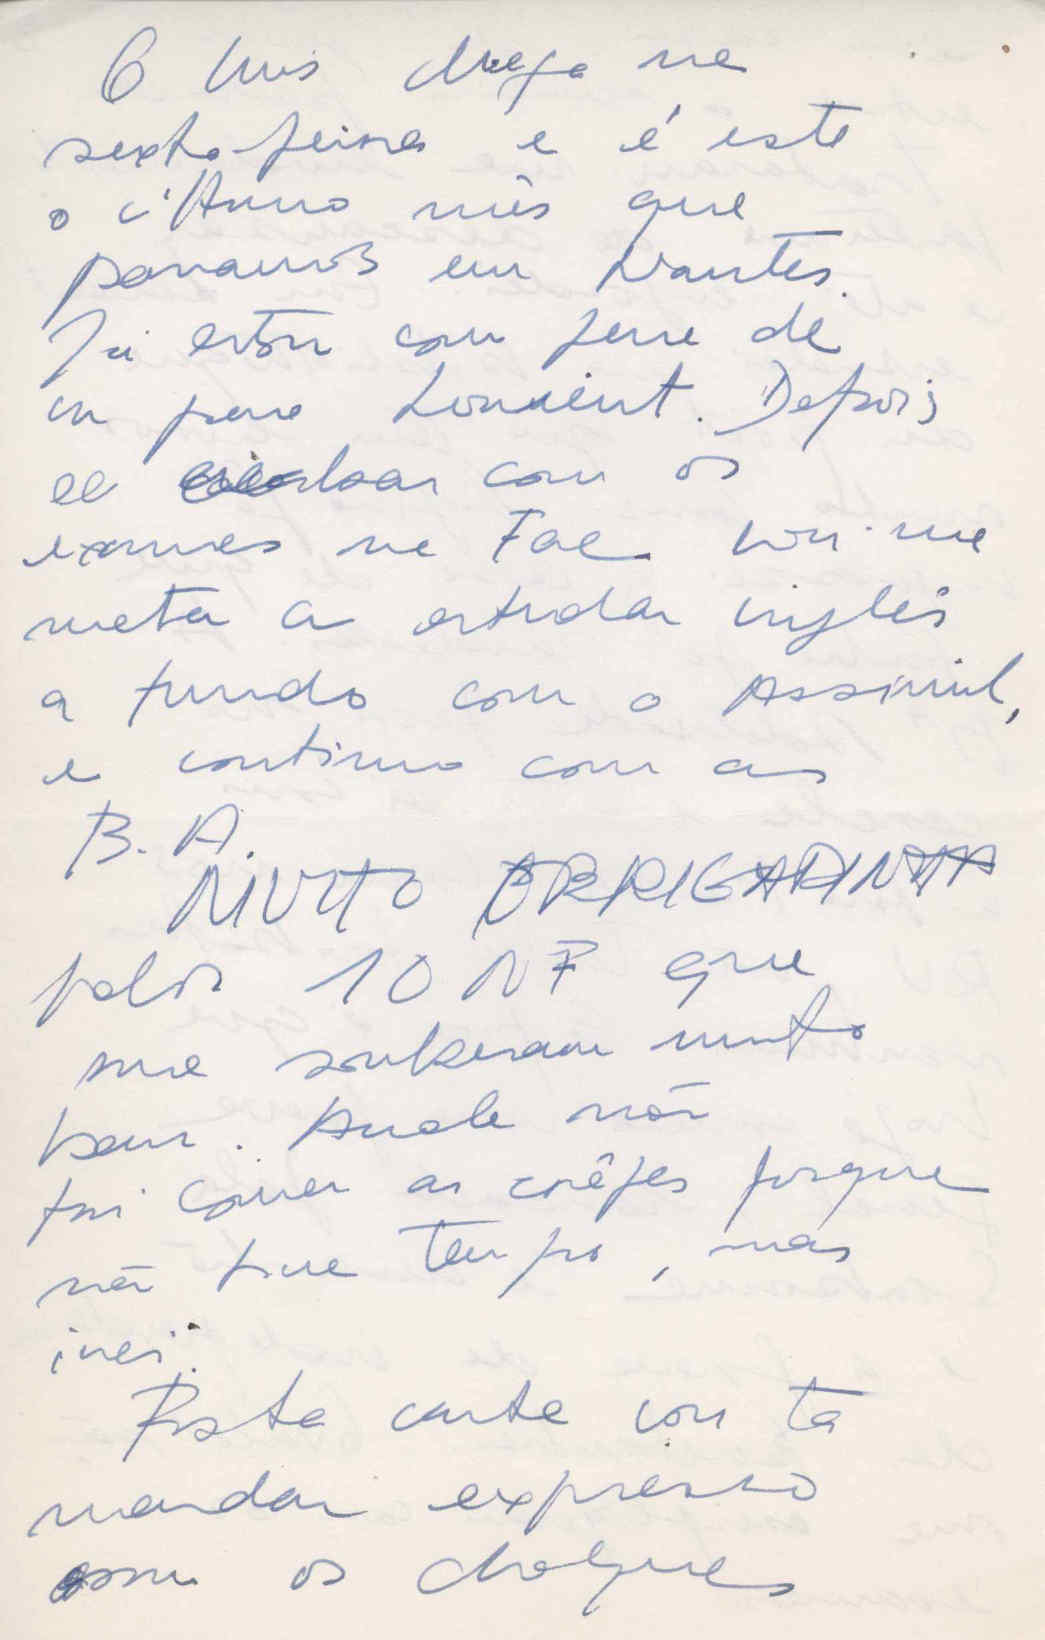 O Luis chega na
sexta-feira e é este
o último mês que
passamos em Nantes.
Já estou com pena de
ir para Lorient. Depois
de acabar com os
exames na Fac vou-me
meter a estudar inglês
a fundo com o Assimil,
e continuo com as
B. A.
MUITO OBRIGADINHA
pelos 10 NF que
me souberam muito
bem. Ainda não
fui comer as crêpes porque
não tive tempo, mas
irei.
Esta carta vou ta
mandar expresso
com os cheques